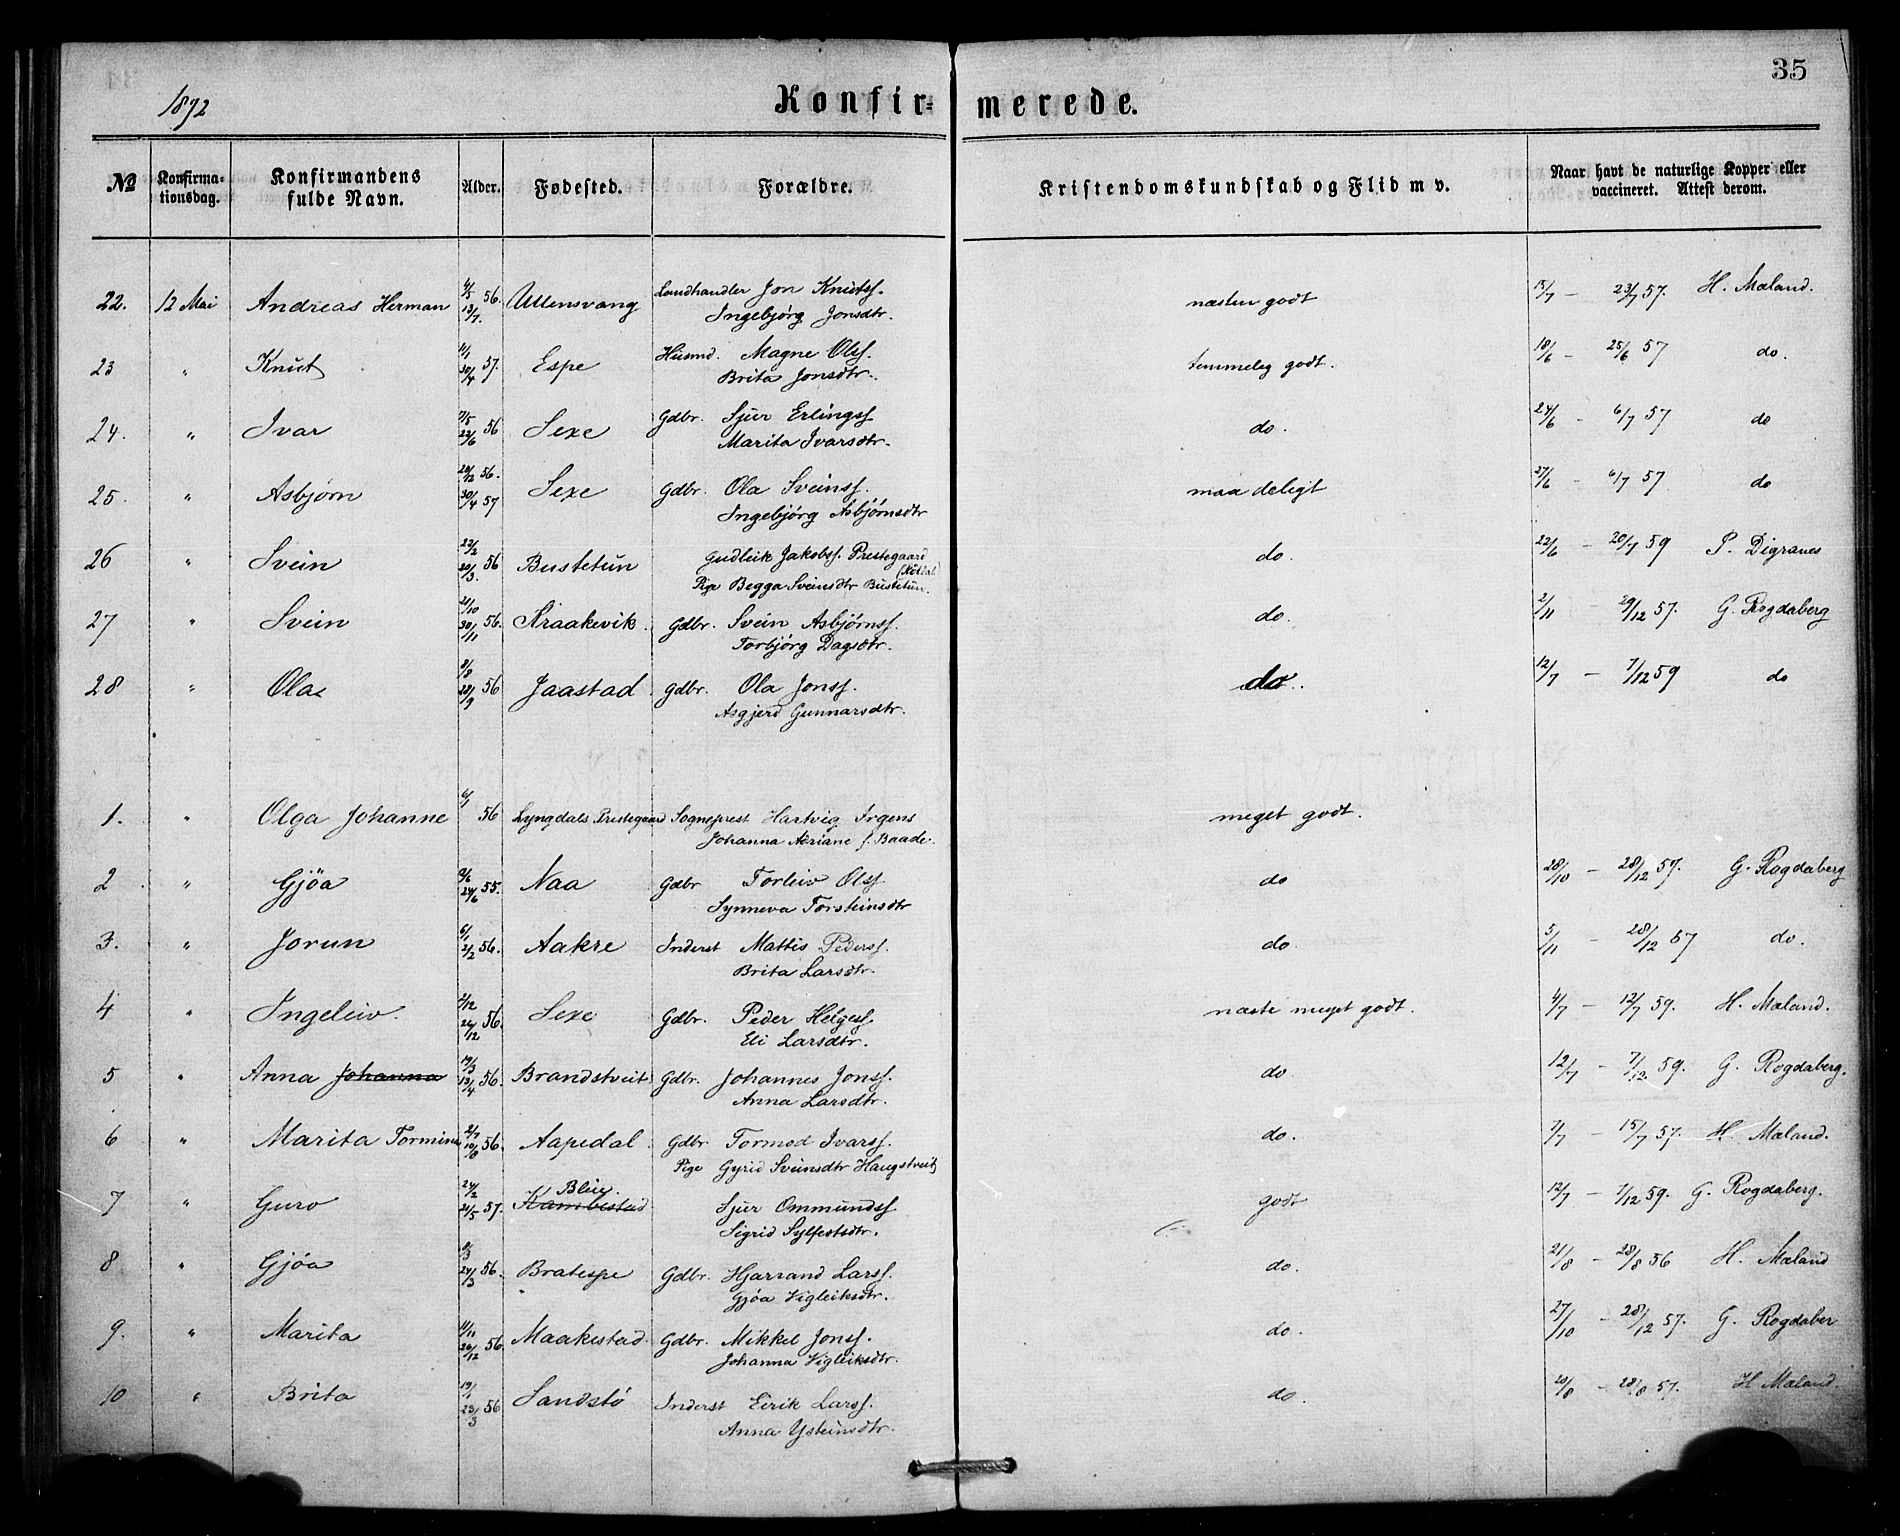 35
1872
Konfir= merede.
№ Konfirma-tionsdag. Konfirmandens fulde Navn. Alder. Fødested. Forældre. Kristendomskundskab og Flid m v. Naar havt de naturlige Kopper eller vaccineret. Attest derom.
22. 12 Mai Andreas Herman 4/5 56. 13/7. Ullensvang Landhandler Jon Knutsf. næsten godt 15/7 – 23/7 57. H. Mæland.
Ingebjørg Jonsdtr.
23 " Knut 11/1 57. 30/4 Espe Husmd. Magne Olsf. temmeleg godt. 18/6 – 25/6 57 do.
Brita Jonsdtr.
24. " Ivar 7/5 56 22/6 Sexe Gdbr. Sjur Erlingsf. do. 24/6 – 6/7 57 do
Marita Ivarsdtr.
25. " Asbjørn 20/12 56. 30/4 57 Sexe Gdbr. Ola Sveinsf. maadeligt 27/6 – 6/7 57 do
Ingebjørg Asbjørnsdtr
26 " Svein 22/2 56 20/3. Bustetun Gudleik Jakobsf. Prestegaard do. 22/6 – 20/7 59 P. Digranes
Pige Begga Sveinsdtr Bustetun.
27 " Svein 21/10 56. 30/11 Kraakevik Gdbr. Svein Asbjørnsf. do. 2/11 – 29/12 57. G. Rogdaberg
Torbjørg Dagsdtr.
28 " Ola 8/8 56 28/9 Jaastad Gdbr. Ola Jonsf. do. 12/7 – 7/12 59 do
Asgjerd Gunnarsdtr.
1. " Olga Johanne 6/1 56 Lyngdals Prestegaard Sogneprest Hartvig Irgens meget godt.
Johanna Adriane f. Baade.
2 " Gjøa 9/6 55. 24/6 Naa Gdbr Torleiv Olsf do 28/10 – 28/12 57. G. Rogdaberg
Synneva Torsteinsdtr
3. " Jorun 6/1 56. 2/2 Aakre Inderst Mattis Pedersf. do. 5/11 – 28/12 57 do.
Brita Larsdtr.
4 " Ingeleiv. 2/12 56. 26/12 Sexe Gdbr. Peder Helgesf. næste meget godt. 4/7 – 12/7 59. H. Mæland.
Eli Larsdtr.
5 " Anna Johanna 19/3 56. 13/4 Brandstveit Gdbr. Johannes Jonsf. do 12/7 – 7/12 59. G. Rogdaberg.
Anna Larsdtr.
6 " Marita Tormine 2/7 56. 10/8 Aapedal Gdbr Tormod Ivarsf. do. 7/7 – 15/7 57. H. Mæland.
Pige Gyrid Sveinsdtr Haugstveit
7 " Guro 24/2 57. 21/5 Bleie. Kambestad Sjur Ommundsf godt 12/7 – 7/12 59. G. Rogdaberg.
Sigrid Sylfestsdtr.
8 " Gjøa 8/3 56. 24/3 Bratespe Gdbr. Hjarrand Larsf. do. 21/8 – 28/8 56 H. Mæland
Gjøa Vigleiksdtr.
9. " Marita 11/11 56. 26/12 Maakestad Gdbr. Mikkel Jonsf. do. 27/10 – 28/12 57. G. Rogdaber
Johanna Vigleiksdtr.
10 " Brita 19/1 56 23/3 Sandstø Inderst Eirik Larsf. do. 20/8 – 28/8 57. H Mæland.
Anna Ysteinsdtr.